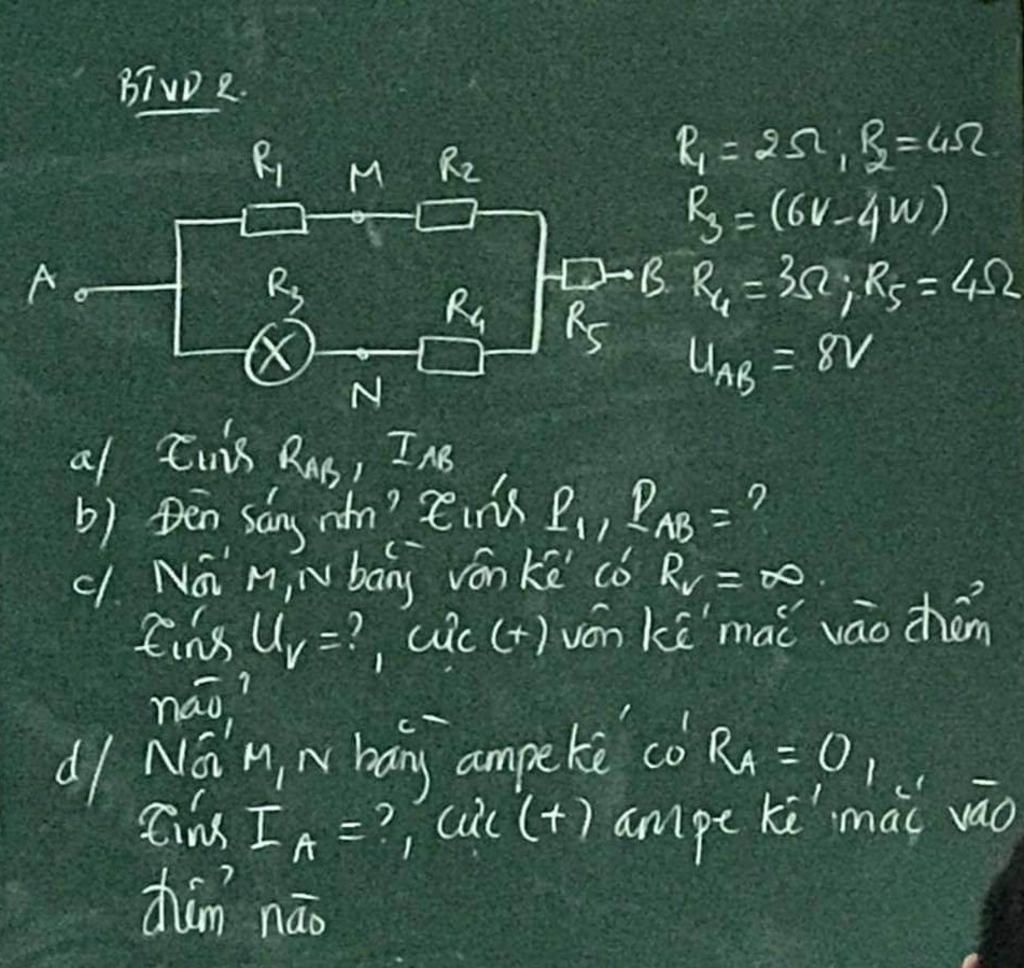 BTVD 2.
R₁ M R₂
R₁ = 2Ω ; R₂ = 4Ω
R₃ = (6V - 4W)
A R₃ R₄ R₅ B
R₄ = 3Ω ; R₅ = 4Ω
N
U_AB = 8V
a/ Tính R_AB, I_AB
b) Đèn sáng ntn? Tính P₁, P_AB = ?
c/. Nối M, N bằng vôn kế có R_V = ∞.
Tính U_V = ?, cực (+) vôn kế mắc vào điểm
nào?
d/ Nối M, N bằng ampe kế có R_A = 0,
Tính I_A = ?, cực (+) ampe kế mắc vào
điểm nào